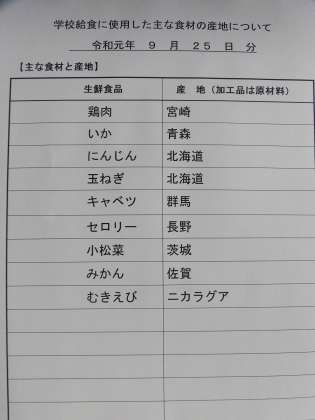 学校給食に使用した主な食材の産地について
令和元年　９　月　２５　日　分
【主な食材と産地】
生鮮食品　産　地（加工品は原材料）
鶏肉　宮崎
いか　青森
にんじん　北海道
玉ねぎ　北海道
キャベツ　群馬
セロリー　長野
小松菜　茨城
みかん　佐賀
むきえび　ニカラグア